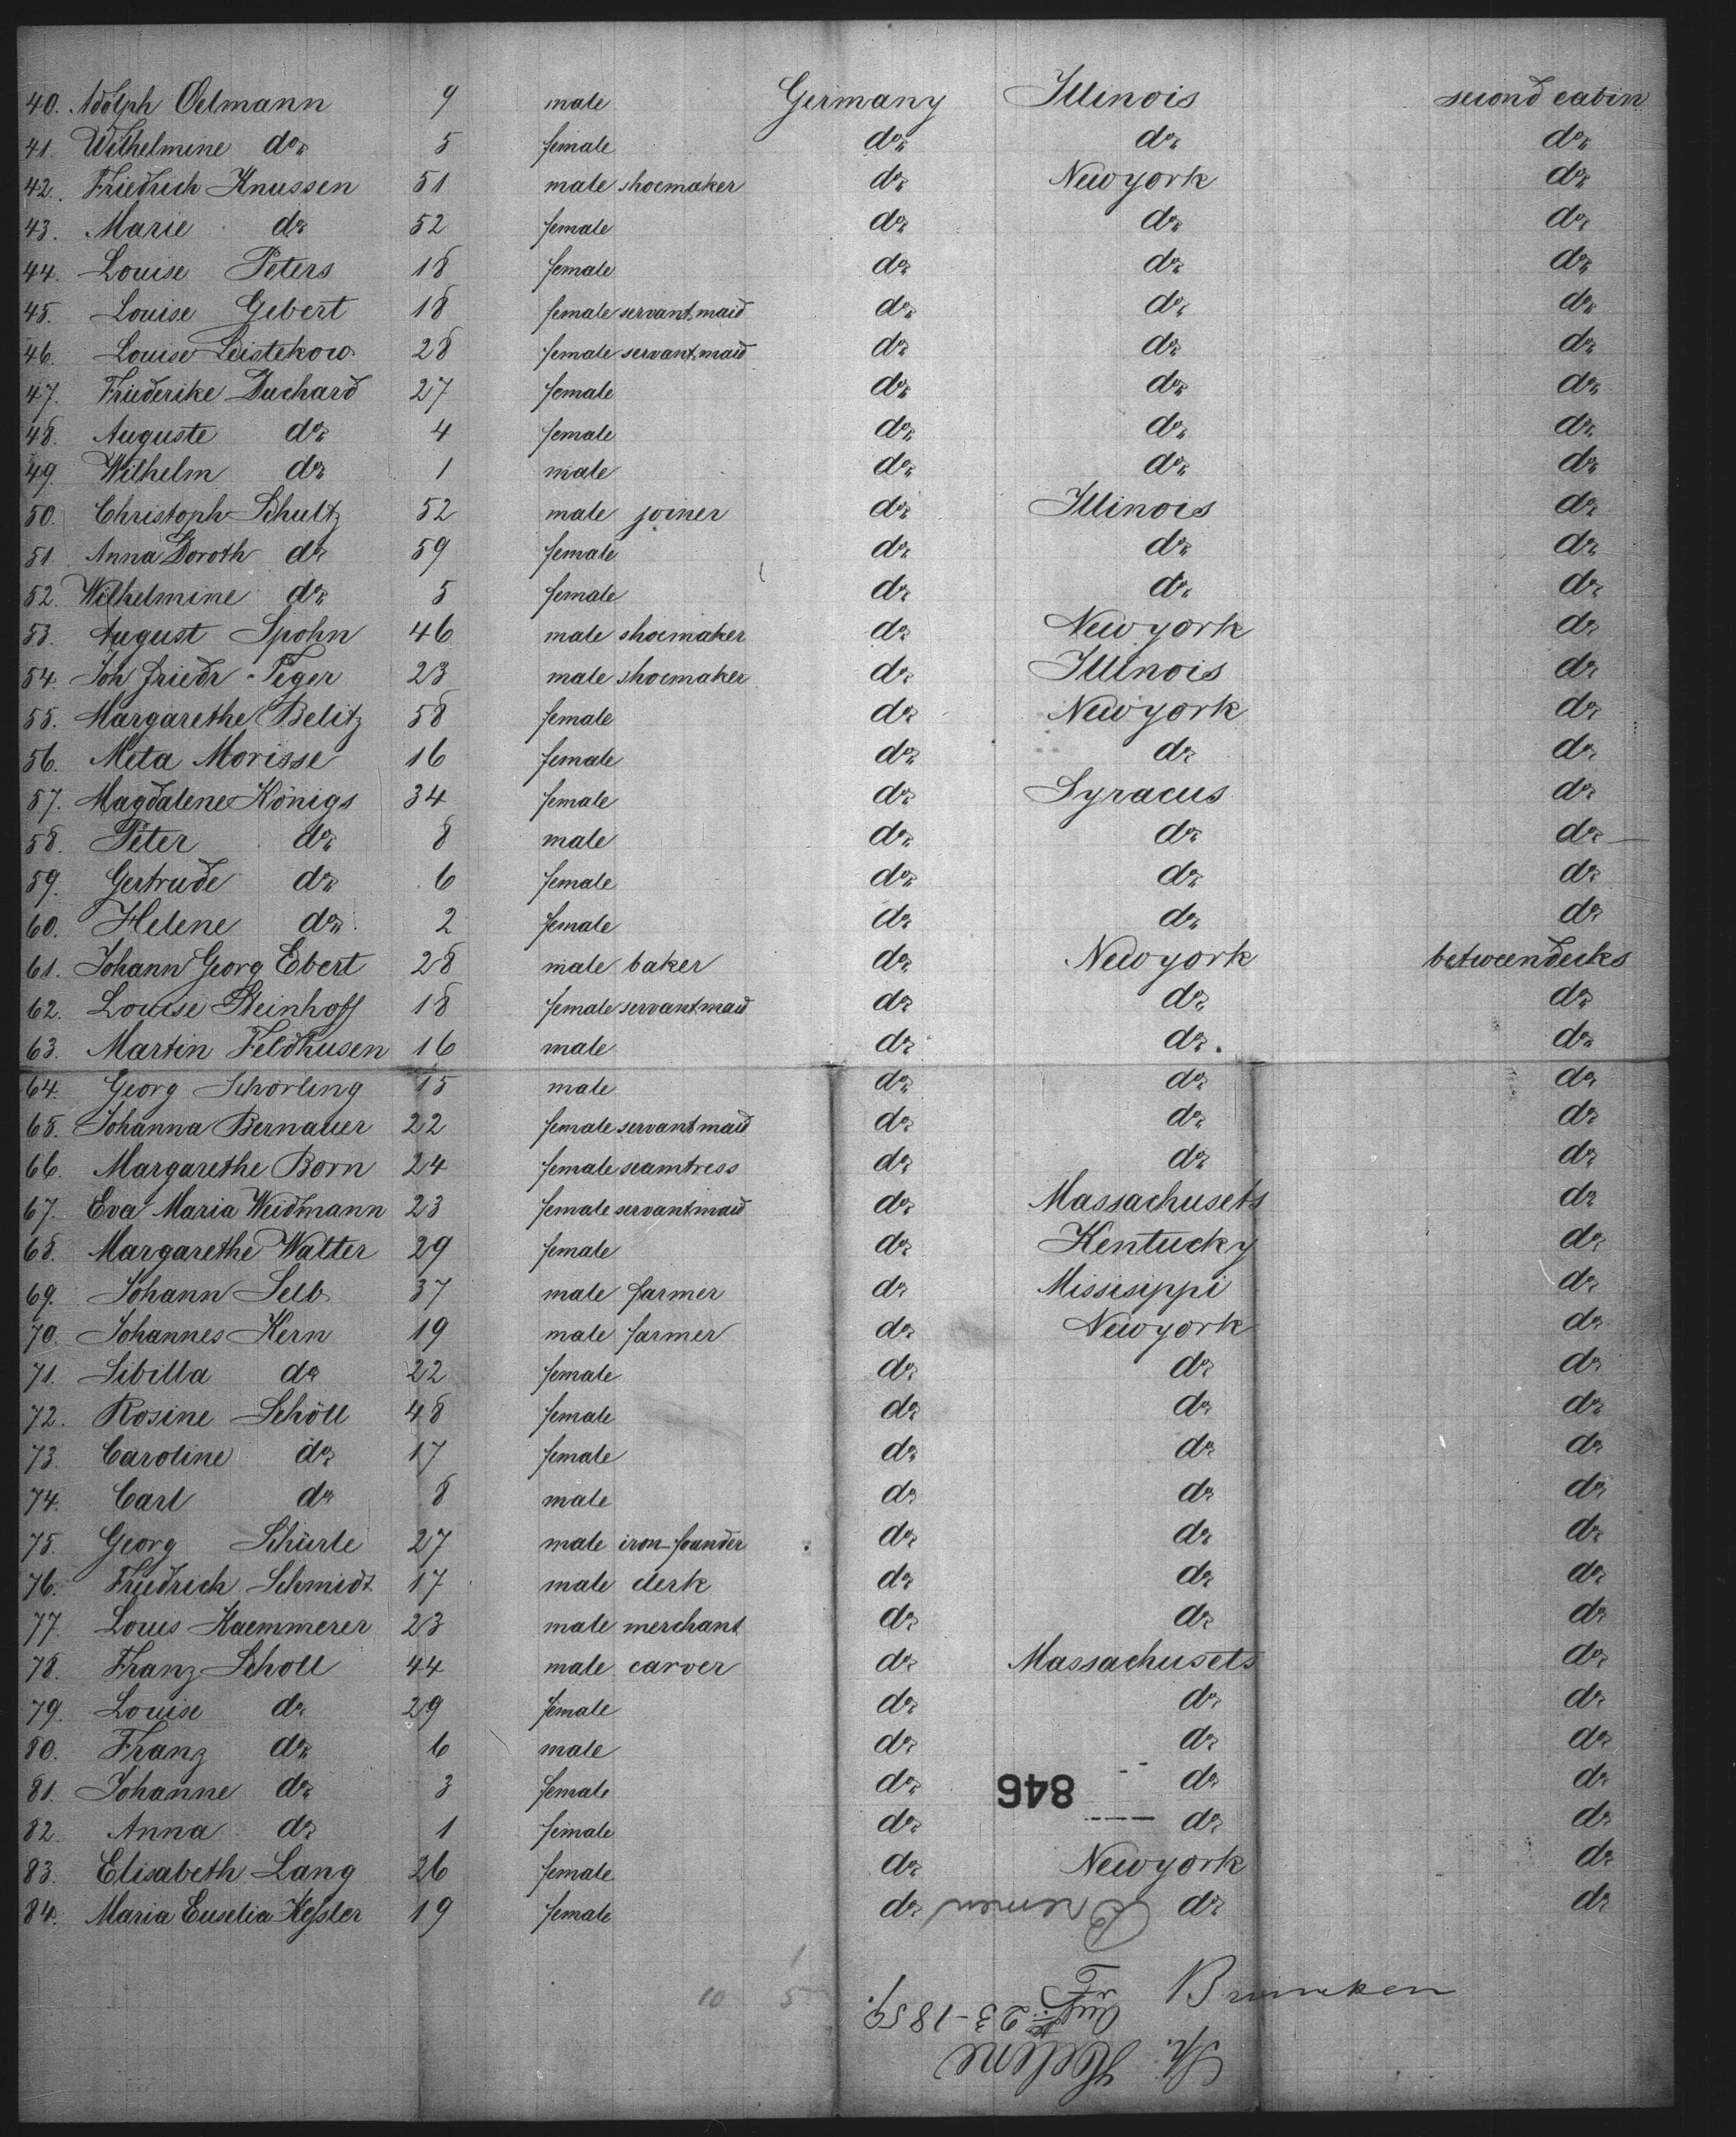 40. Adolph Oelmann 9 male Germany Illinois second cabin
41. Wilhelmine do 5 female do do do
42. Friedrich Knussen 51 male shoemaker do Newyork do
43. Marie do 52 female do do do
44. Louise Peters 18 female do do do
45. Louise Gebert 18 female servantmaid do do do
46. Louise Leistekow 28 female servantmaid do do do
47. Friederike Duchard 27 female do do do
48. Auguste do 4 female do do do
49. Wilhelm do 1 male do do do
50. Christoph Schultz 52 male joiner do Illinois do
51. Anna Doroth do 59 female do do do
52. Wilhelmine do 5 female do do do
53. August Spohn 46 male shoemaker do Newyork do
54. Joh Friedr Feger 23 male shoemaker do Illinois do
55. Margarethe Belitz 58 female do Newyork do
56. Meta Morisse 16 female do do do
57. Magdalene Königs 34 female do Syracus do
58. Peter do 8 male do do do
59. Gertrude do 6 female do do do
60. Helene do 2 female do do do
61. Johann Georg Ebert 28 male baker do Newyork betweendecks
62. Louise Steinhoff 18 female servantmaid do do do
63. Martin Feldhusen 16 male do do do
64. Georg Schorling 15 male do do do
65. Johanna Bernauer 22 female servantmaid do do do
66. Margarethe Born 24 female seamtress do do do
67. Eva Maria Weidmann 23 female servantmaid do Massachusets do
68. Margarethe Walter 29 female do Kentucky do
69. Johann Selb 37 male farmer do Missisippi do
70. Johannes Kern 19 male farmer do Newyork do
71. Sibilla do 22 female do do do
72. Rosine Schöll 48 female do do do
73. Caroline do 17 female do do do
74. Carl do 8 male do do do
75. Georg Schürle 27 male iron-founder do do do
76. Friedrich Schmidt 17 male clerk do do do
77. Louis Kaemmerer 23 male merchant do do do
78. Franz Scholl 44 male carver do Massachusets do
79. Louise do 29 female do do do
80. Franz do 6 male do do do
81. Johanne do 3 female do do do
846
82. Anna do 1 female do do do
83. Elisabeth Lang 26 female do Newyork do
84. Maria Euselia Kessler 19 female do do do
Bremen
1
10 5
Fr Brunken
Aug 23-1859.
Sh. Helene